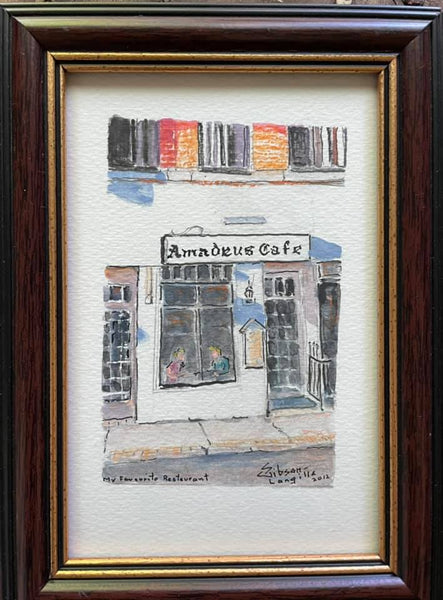 Amadeus Cafe
My Favourite Restaurant
Gibson
Langille
2012